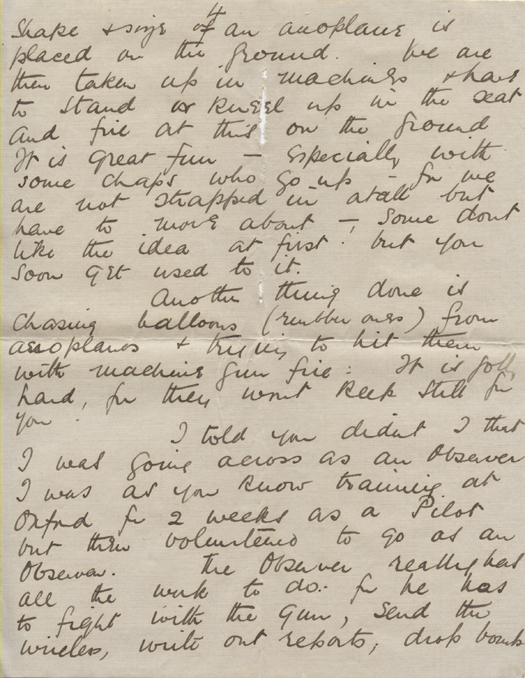 4
Shape & size of an aeroplane is
placed on the ground. We are
then taken up in machines & have
to stand or kneel up in the seat
and fire at this on the ground
It is great fun – especially with
some chaps who go up – for we
are not strapped in atall but
have to move about – some dont
like the idea at first. but you
soon get used to it.
Another thing done is
chasing balloons (rubber ones) from
aeroplanes & trying to hit them
with machine gun fire. It is jolly
hard, for they wont keep still for
you.
I told you didnt I that
I was going across as an Observer
I was as you know training at
Oxford for 2 weeks as a Pilot
but then volunteered to go as an
Observer. The Observer really has
all the work to do. for he has
to fight with the gun, send the
wireless, write out reports, drop bombs